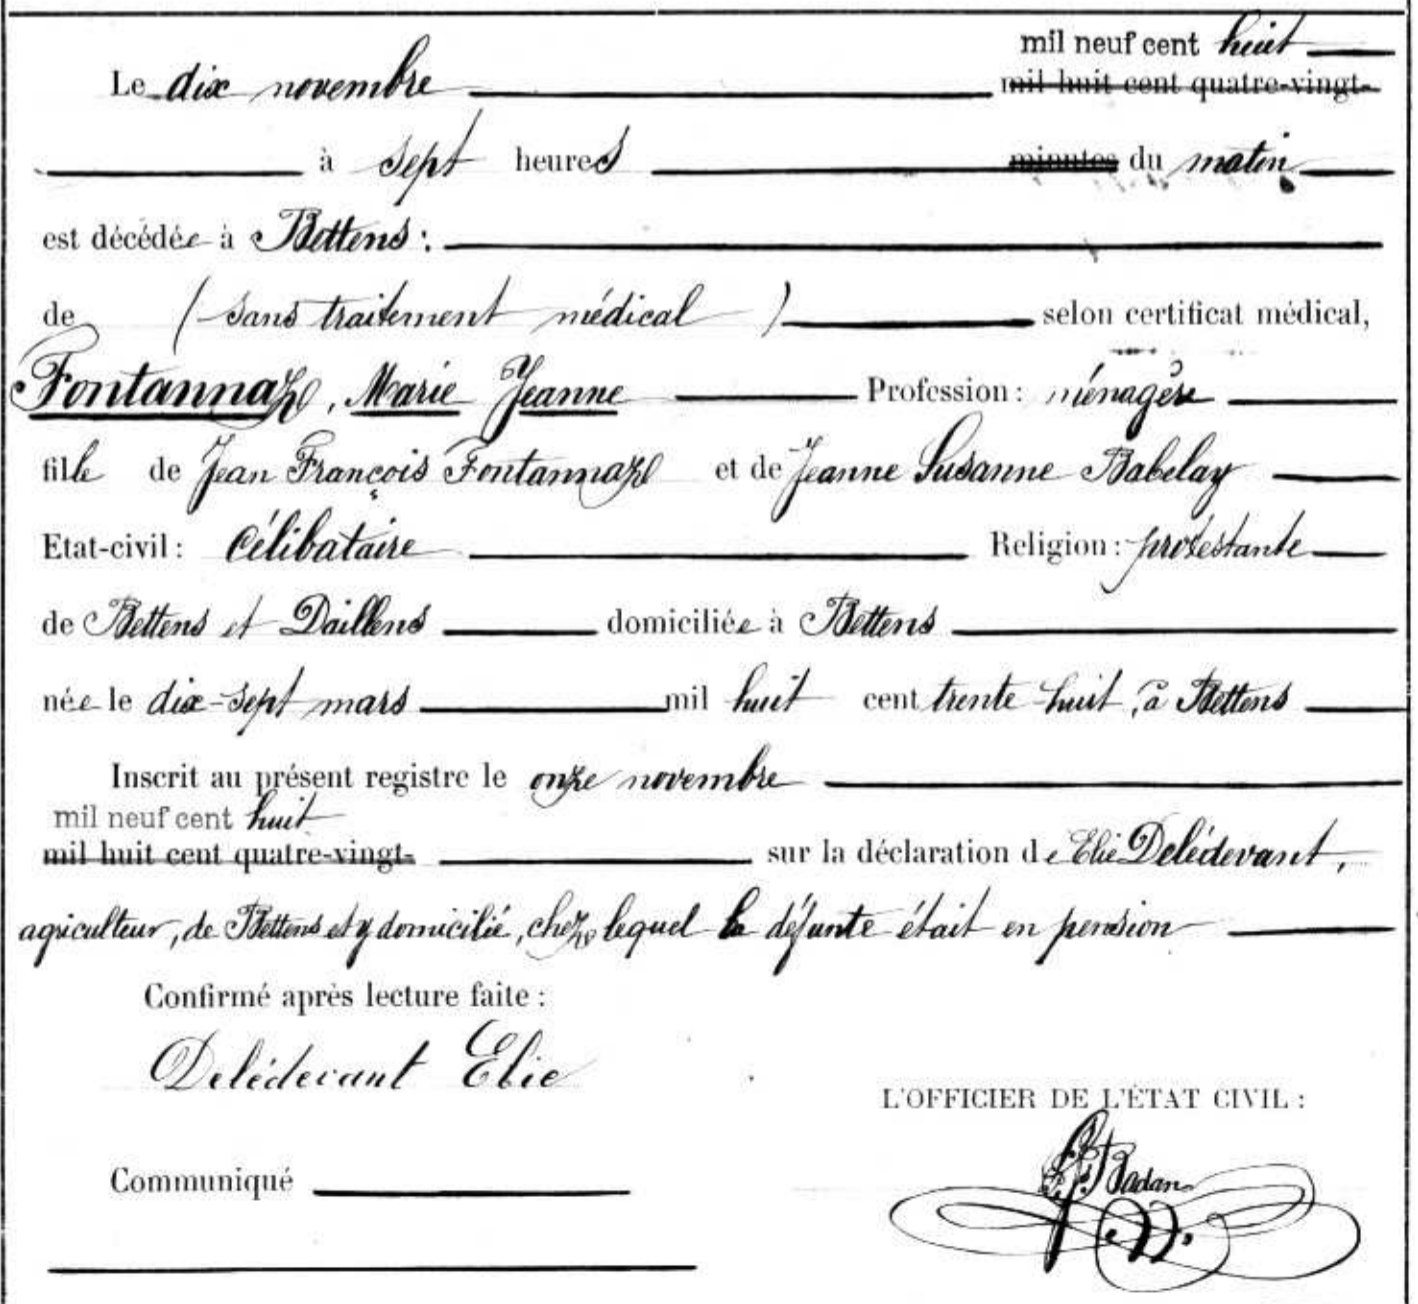 mil neuf cent huit
Le dix novembre mil huit cent quatre-vingt-
à sept heures minutes du matin
est décédée à Bettens :
de (sans traitement médical) selon certificat médical,
Fontannaz, Marie Jeanne Profession : ménagère
fille de Jean François Fontannaz et de Jeanne Susanne Babelay
Etat-civil : Célibataire Religion : protestante
de Bettens et Daillens domiciliée à Bettens
née le dix-sept mars mil huit cent trente-huit, à Bettens
Inscrit au présent registre le onze novembre
mil neuf cent huit
mil huit cent quatre-vingt- sur la déclaration de Elie Delédevant,
agriculteur, de Bettens et y domicilié, chez lequel la défunte était en pension
Confirmé après lecture faite :
Delédevant Elie
L'OFFICIER DE L'ÉTAT CIVIL :
Badan
Communiqué